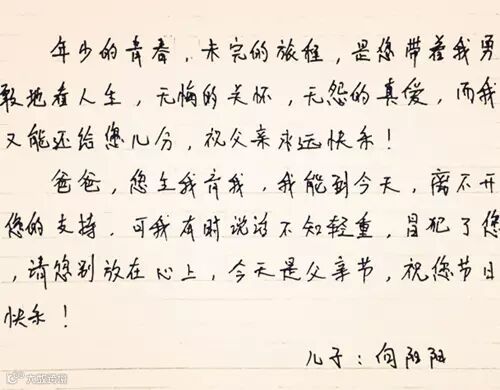 年少的青春，未完的旅程，是您带着我勇
敢地看人生，无悔的关怀，无怨的真爱，而我
又能还给您几分，祝父亲永远快乐！
爸爸，您生我育我，我能到今天，离不开
您的支持，可我有时说话不知轻重，冒犯了您
，请您别放在心上，今天是父亲节，祝您节日
快乐！
儿子：向阳阳
大成跨境